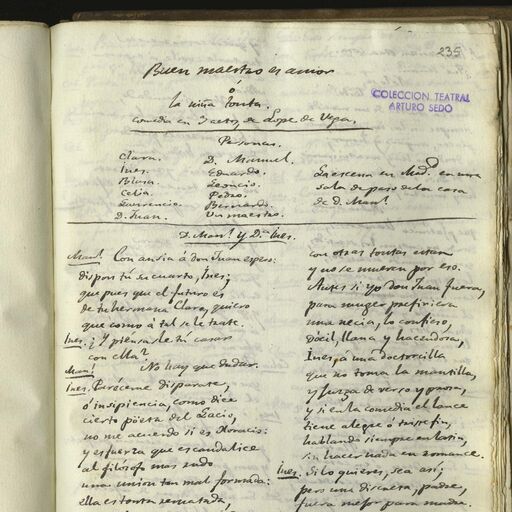 235
Buen maestro es amor
ó
la niña tonta.
Comedia en 3 actos de Lope de Vega.
COLECCION TEATRAL
ARTURO SEDÓ
Personas.
Clara.
Ines.
Blasa.
Celia.
Laurencio.
D. Juan.
D. Manuel.
Eduardo.
Leoncio.
Pedro.
Bernardo.
Un maestro.
La escena en Mad.d en una
sala de paso de la casa
de d. Man.l
D. Man.l y D.a Ines.
Man.l Con ansia á don Juan espero:
dispon tú su cuarto, Ines;
que pues que el futuro es
de tu hermana Clara, quiero
que como á tal se le trate.
Ines. ¿Y piensas le tú casar
con ella?
Man.l No hay que dudar.
Ines. Paréceme disparate,
ó insipiencia, como dice
cierto pöeta del Lacio,
no me acuerdo si es Horacio:
y es fuerza que escandalice
al filósofo mas rudo
una union tan mal formada:
ella es tonta rematada,
con otras tontas estan
y no se mueren por eso.
Antes si yo don Juan fuera,
para muger prefiriera
una necia, lo confieso,
dócil, llana y hacendosa,
Ines, á una doctorcilla
que no toma la mantilla,
y juzga de verso y prosa,
y si en la comedia el lance
tiene alegre ó triste fin,
hablando siempre en latin,
sin hacer nada en romance.
Ines. Si lo quieres, sea así;
pero una discreta, padre,
fuera mejor para madre.